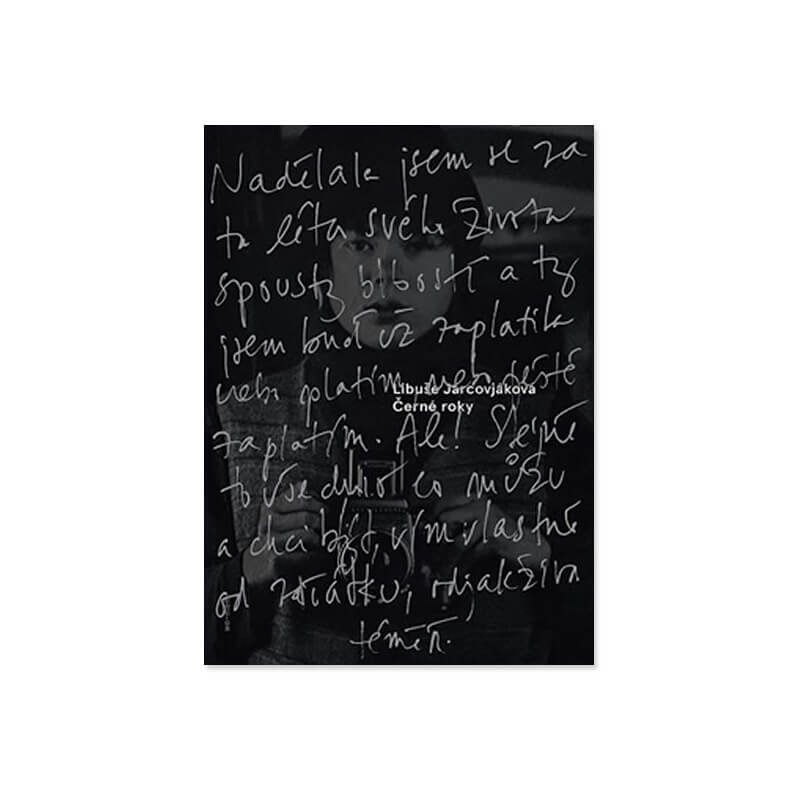 Nadělala jsem se za
ta léta svého života
spousty blbostí a ty
jsem buď už zaplatila
nebo platím, nebo ještě
zaplatím. Ale! Stejně
to vše chci co můžu
a chci být, vím vlastně
od začátku, odjakživa
téměř.
Libuše Jarcovjáková
Černé roky